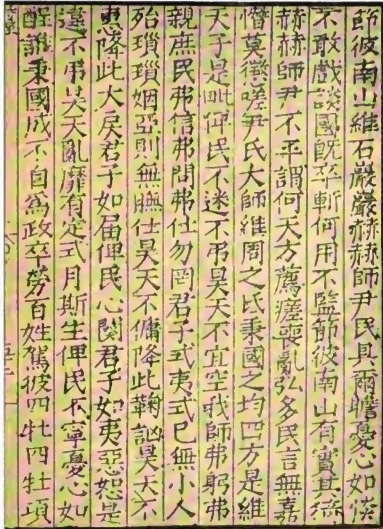 節彼南山維石巖巖赫赫師尹民具爾瞻憂心如惔
不敢戲談國旣卒斬何用不監節彼南山有實其猗
赫赫師尹不平謂何天方薦瘥喪亂弘多民言無嘉
憯莫懲嗟尹氏大師維周之氐秉國之均四方是維
天子是毗俾民不迷不弔昊天不宜空我師弗躬弗
親庶民弗信弗問弗仕勿罔君子式夷式已無小人
殆瑣瑣姻亞則無膴仕昊天不傭降此鞠訩昊天不
惠降此大戾君子如屆俾民心闋君子如夷惡怒是
違不弔昊天亂靡有定式月斯生俾民不寧憂心如
酲誰秉國成不自為政卒勞百姓駕彼四牡四牡項